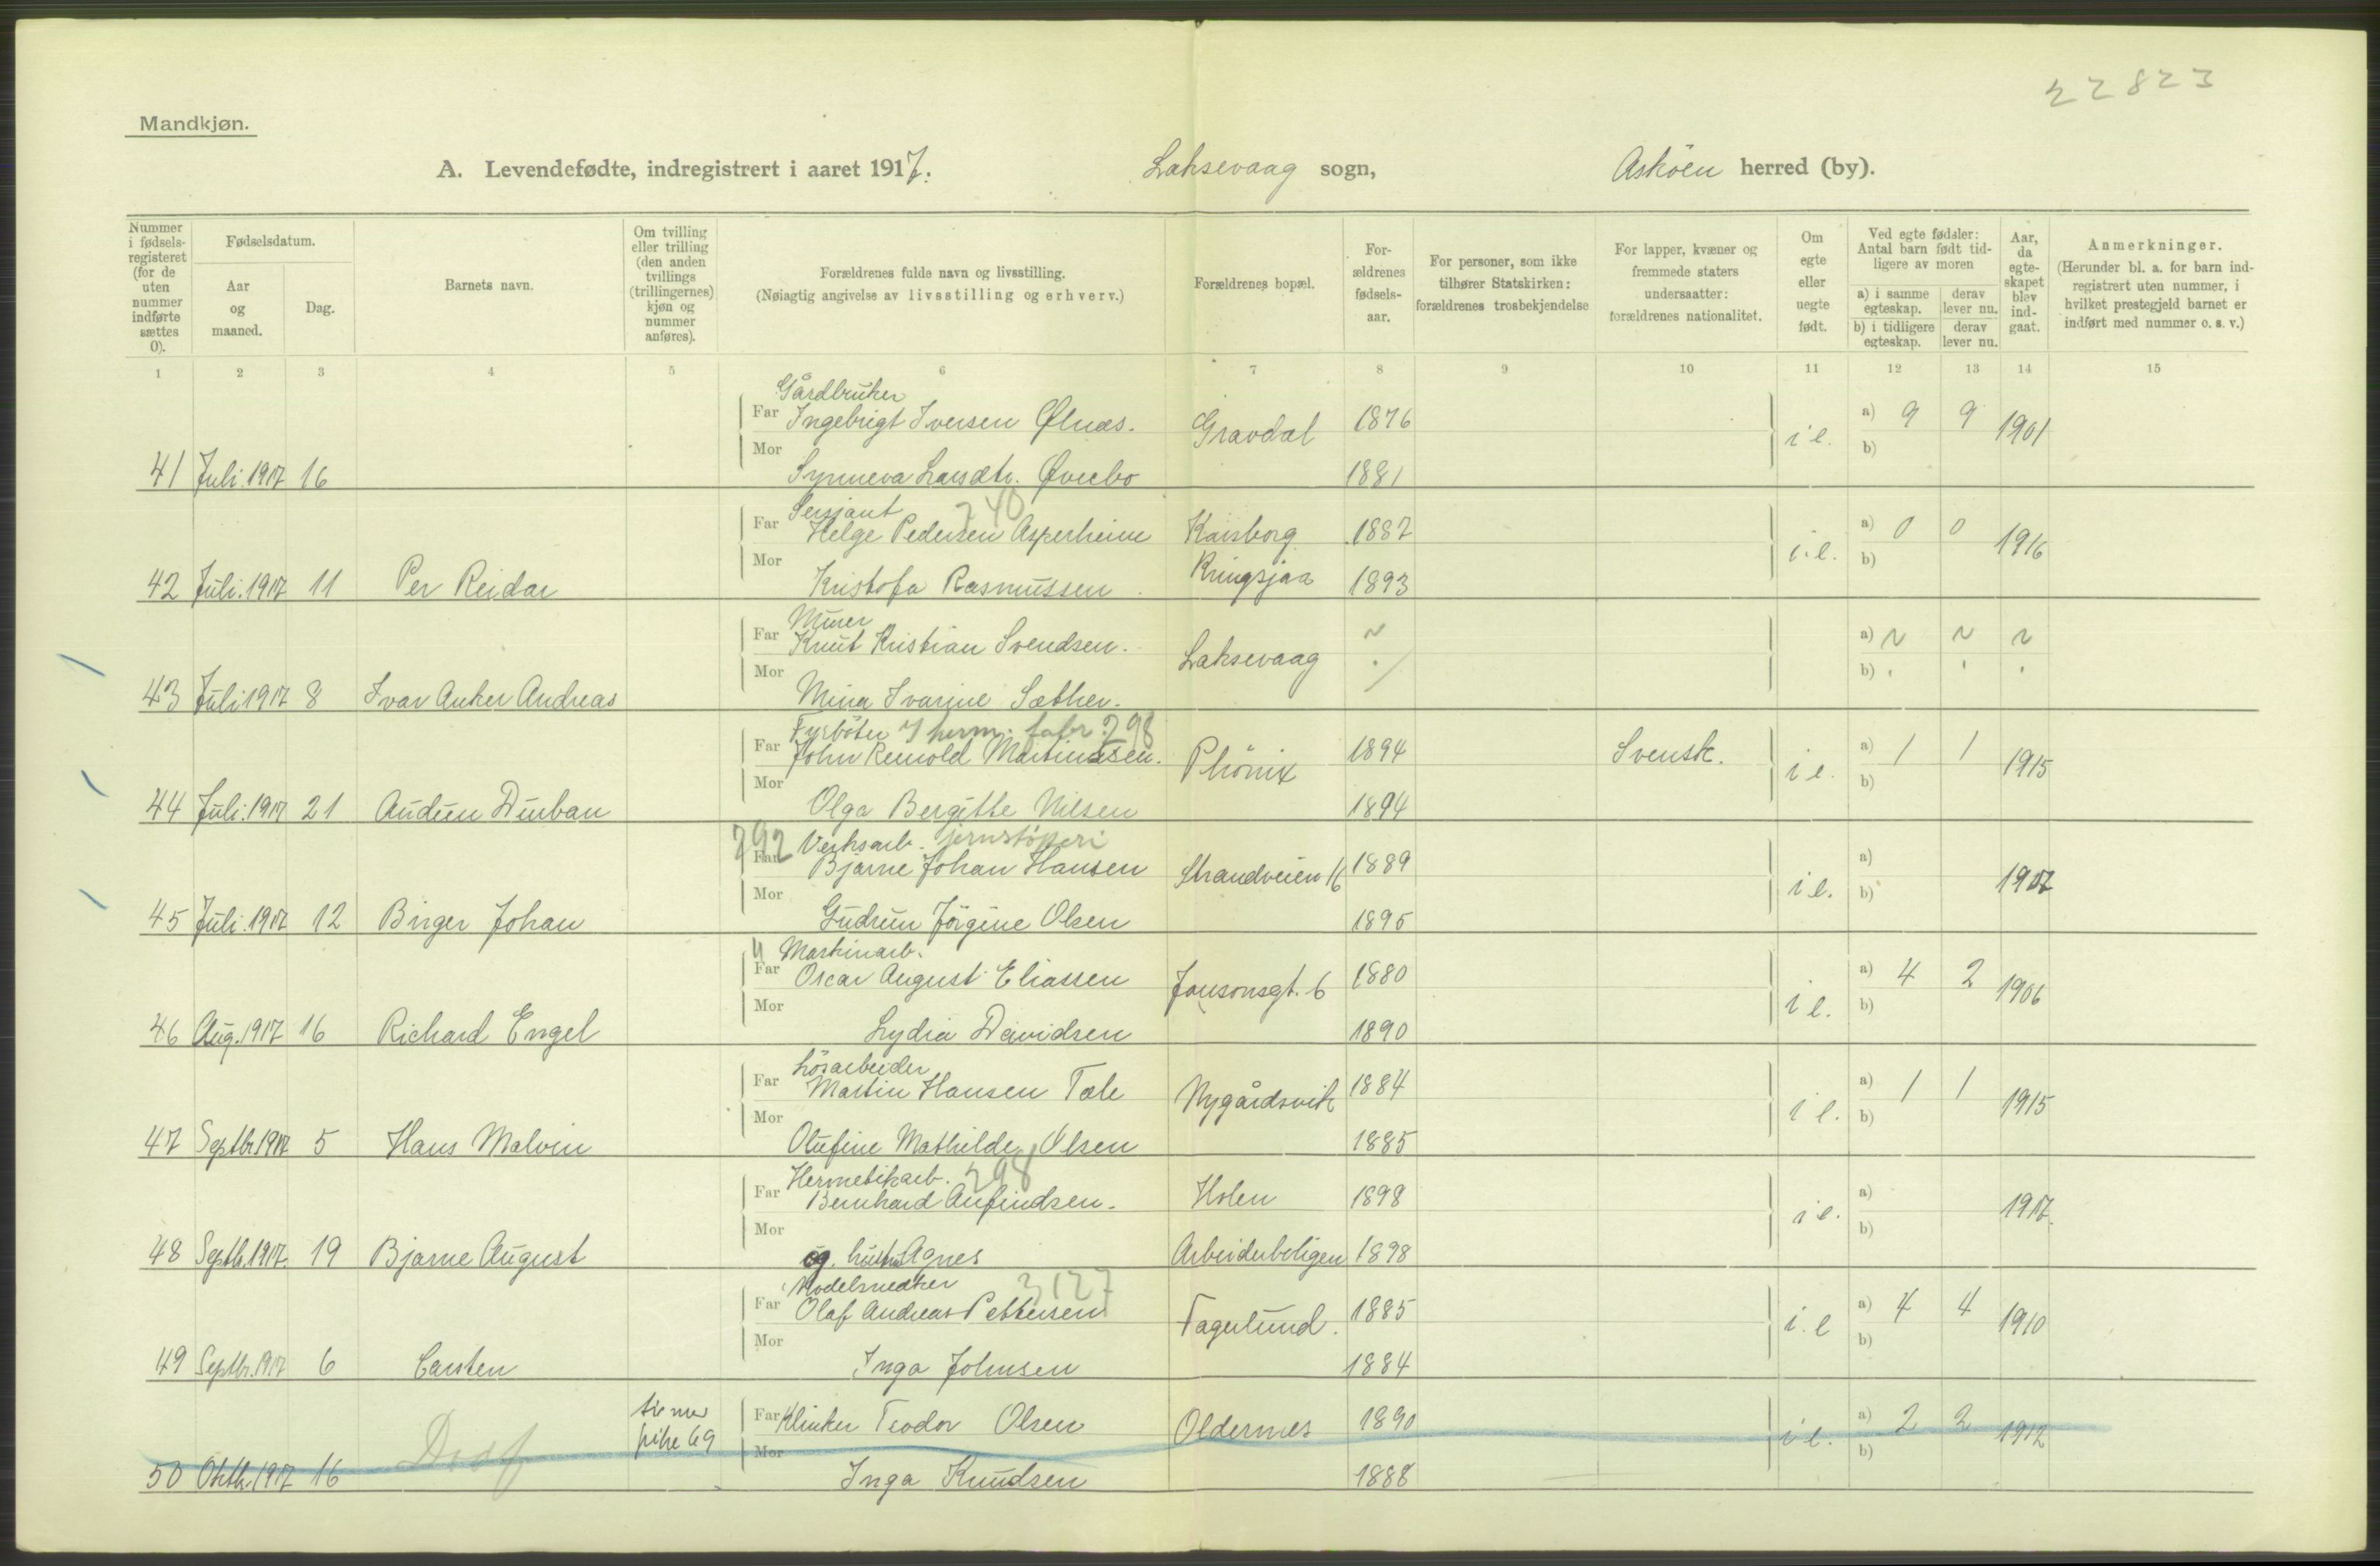 22823
Mandkjøn.
A. Levendefødte, indregistrert i aaret 1917. Laksevaag sogn, Askøen herred (by).
Nummer i fødsels-registeret (for de uten nummer indførte sættes 0).
Fødselsdatum.
Aar og maaned.
Dag.
Barnets navn.
Om tvilling eller trilling (den anden tvillings (trillingernes) kjøn og nummer anføres).
Forældrenes fulde navn og livsstilling.
(Nøiagtig angivelse av livsstilling og erhverv.)
Forældrenes bopæl.
For-ældrenes fødsels-aar.
For personer, som ikke tilhører Statskirken: forældrenes trosbekjendelse
For lapper, kvæner og fremmede staters undersaatter: forældrenes nationalitet.
Om egte eller uegte født.
Ved egte fødsler: Antal barn født tid-ligere av moren
a) i samme egteskap. derav lever nu.
b) i tidligere egteskap. derav lever nu.
Aar, da egte-skapet blev ind-gaat.
Anmerkninger.
(Herunder bl. a. for barn ind-registrert uten nummer, i hvilket prestegjeld barnet er indført med nummer o. s. v.)
1 2 3 4 5 6 7 8 9 10 11 12 13 14 15
Gårdbruker
Far Ingebrigt Iversen Ølnæs. Gravdal 1876 i e. a) 9 9 1901
Mor b)
41 Juli 1917 16 Synneva Larsdtr. Øvrebo 1881
Sersjant 240
Far Helge Pedersen Asperheim Kaisborg 1887 i.e. a) 0 0 1916
Mor b)
42 Juli. 1917 11 Per Reidar Kristofa Rasmussen Kringsjaa 1893
Murer
Far Knut Kristian Svendsen. Laksevaag a)
Mor b)
43 Juli 1917 8 Ivar Anker Andreas Mina Ivarine Sæther.
Fyrbøter i herm. fabr. 298
Far John Reinold Martinssen. Phönix 1894 Svensk. i e. a) 1 1 1915
Mor b)
44 Juli. 1917 21 Audun Durban Olga Bergitte Nilsen 1894
292 Verksarb. jernstøperi
Far Bjarne Johan Hansen Strandveien 16 1889 i e. a) 1917
Mor b)
45 Juli. 1917 12 Birger Johan Gudrun Jörgine Olsen 1895
Maskinarb.
Far Oscar August Eliassen Jansonsgt. 6 1880 i e. a) 4 2 1906
Mor b)
46 Aug. 1917 16 Richard Engel Lydia Davidsen 1890
Løsarbeider
Far Martin Hansen Tale Nygårdsvik 1884 i e. a) 1 1 1915
Mor b)
47 Septbr 1917 5 Hans Malvin Olufine Mathilde Olsen 1885
Hermetikarb. 298
Far Bernhard Anfindsen. Holen 1898 i e. a) 1917.
Mor b)
48 Septb. 1917. 19 Bjarne August og hustru Agnes Arbeiderboligen 1898
Modelsnedker 3127
Far Olaf Andreas Pettersen Fagerlund. 1885 i. e a) 4 4 1910
Mor b)
49 Septbr. 1917 6 Carsten Inga Johnsen 1884
Far Klinker Teodor Olsen Oldernes 1890 i e. a) 2 2 1912
pike 69
Mor b)
50 Oktbr. 1917 16 Inga Knudsen 1888